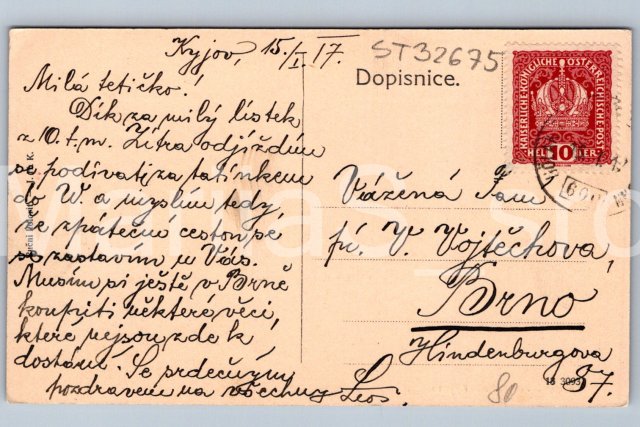 Kyjov, 15./I. 17.
ST32675
Milá tetičko!
Dík za milý lístek
z 10. t. m. Zítra odjíždím
se podívati za tatínkem
do W. a myslím tedy,
že zpáteční cestou se
se zastavím u Vás.
Musím si ještě v Brně
koupiti některé věci,
které nejsou zde k
dostání. Se srdečným
pozdravem na všechny Leos.
Dopisnice.
KAISERLICHE KÖNIGLICHE ÖSTERREICHISCHE POST
HELLER 10
Vážená Paní
pí. V. Vojtěchova,
Brno
Hindenburgova
37.
13 3093
80